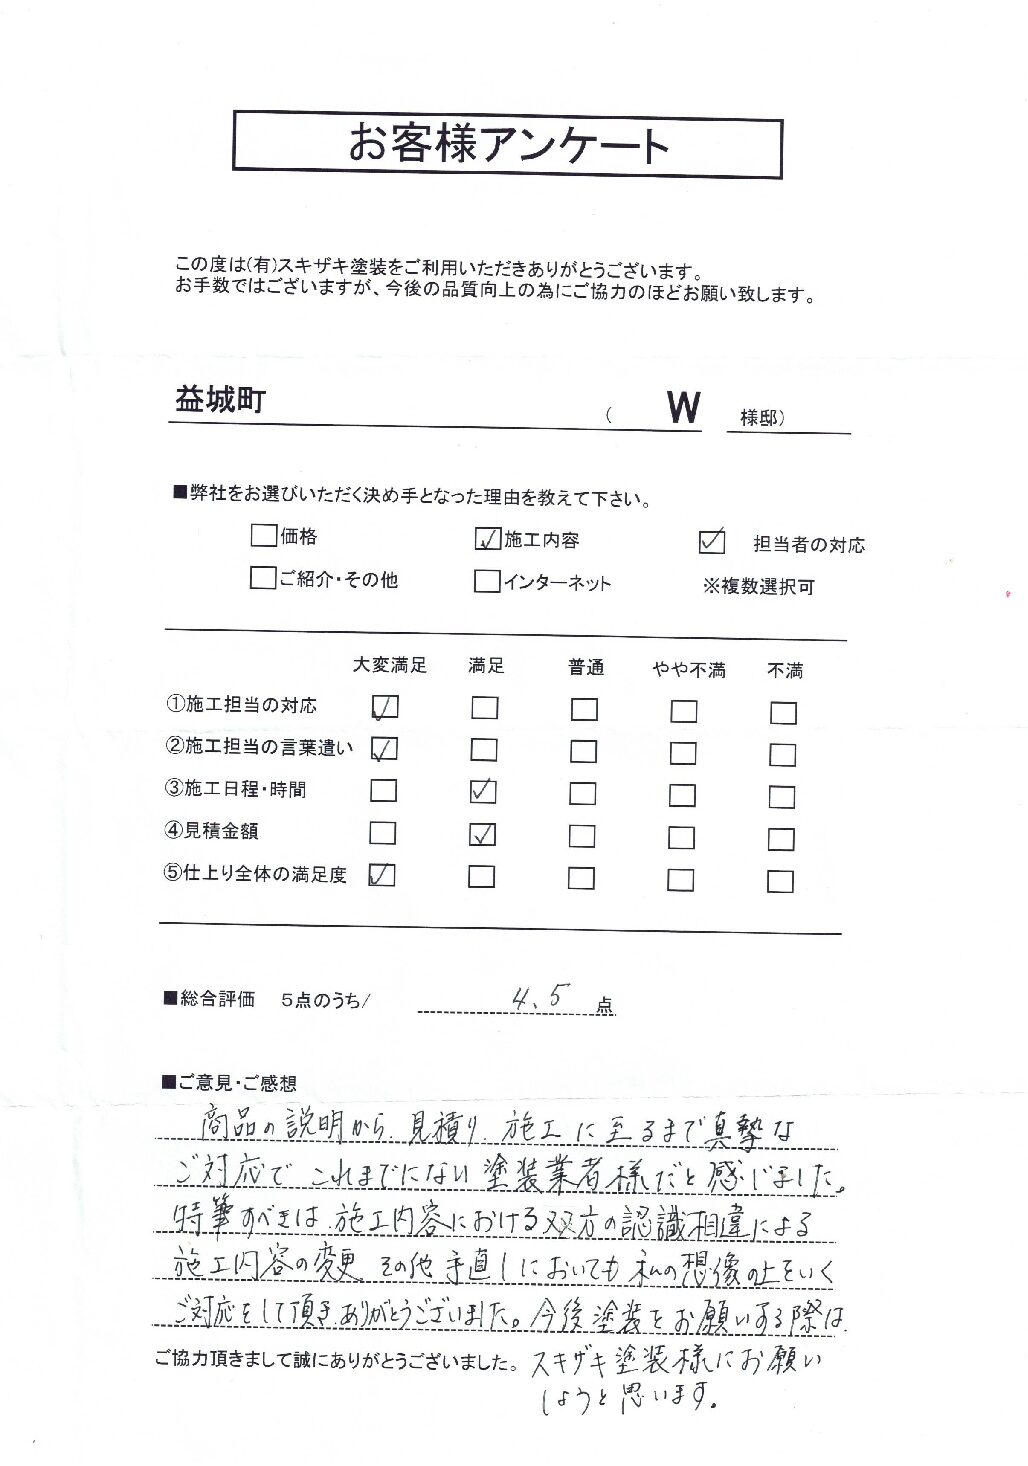 お客様アンケート
この度は(有)スキザキ塗装をご利用いただきありがとうございます。
お手数ではございますが、今後の品質向上の為にご協力のほどお願い致します。
益城町 ( W 様邸)
■弊社をお選びいただく決め手となった理由を教えて下さい。
□価格 ☑施工内容 ☑ 担当者の対応
□ご紹介・その他 □インターネット ※複数選択可
大変満足 満足 普通 やや不満 不満
①施工担当の対応 ☑ □ □ □ □
②施工担当の言葉遣い ☑ □ □ □ □
③施工日程・時間 □ ☑ □ □ □
④見積金額 □ ☑ □ □ □
⑤仕上り全体の満足度 ☑ □ □ □ □
■総合評価 5点のうち/ 4.5 点
■ご意見・ご感想
商品の説明から、見積り、施工に至るまで真摯な
ご対応で これまでにない塗装業者様だと感じました。
特筆すべきは、施工内容における双方の認識相違による
施工内容の変更 その他 手直しにおいても 私の想像の上をいく
ご対応をして頂き、ありがとうございました。今後塗装をお願いする際は、
ご協力頂きまして誠にありがとうございました。 スキザキ塗装様にお願い
しようと思います。